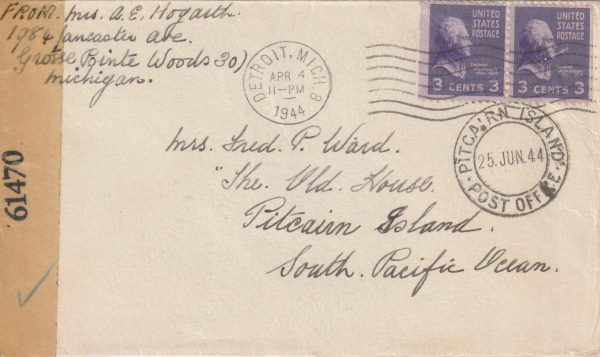 FROM. Mrs. A. E. Hogarth
1984 Lancaster Ave.
Grosse Pointe Woods 30)
Michigan.
DETROIT, MICH. 8
APR 4
11-PM
1944
UNITED
STATES
POSTAGE
3 CENTS 3
UNITED
STATES
POSTAGE
3 CENTS 3
PITCAIRN ISLAND
25. JUN. 44
POST OFFICE
61470
Mrs. Fred. P. Ward.
"The Old House.
Pitcairn Island.
South. Pacific Ocean.